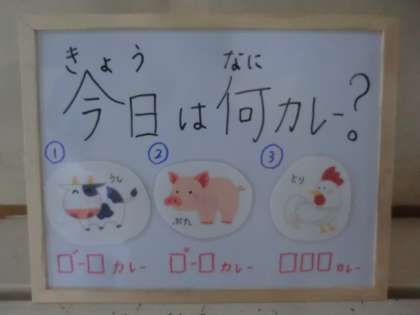 きょう なに
今日は何カレー?
① ② ③
うし ぶた とり
□゛ー□カレー □゛ー□カレー □□□カレー